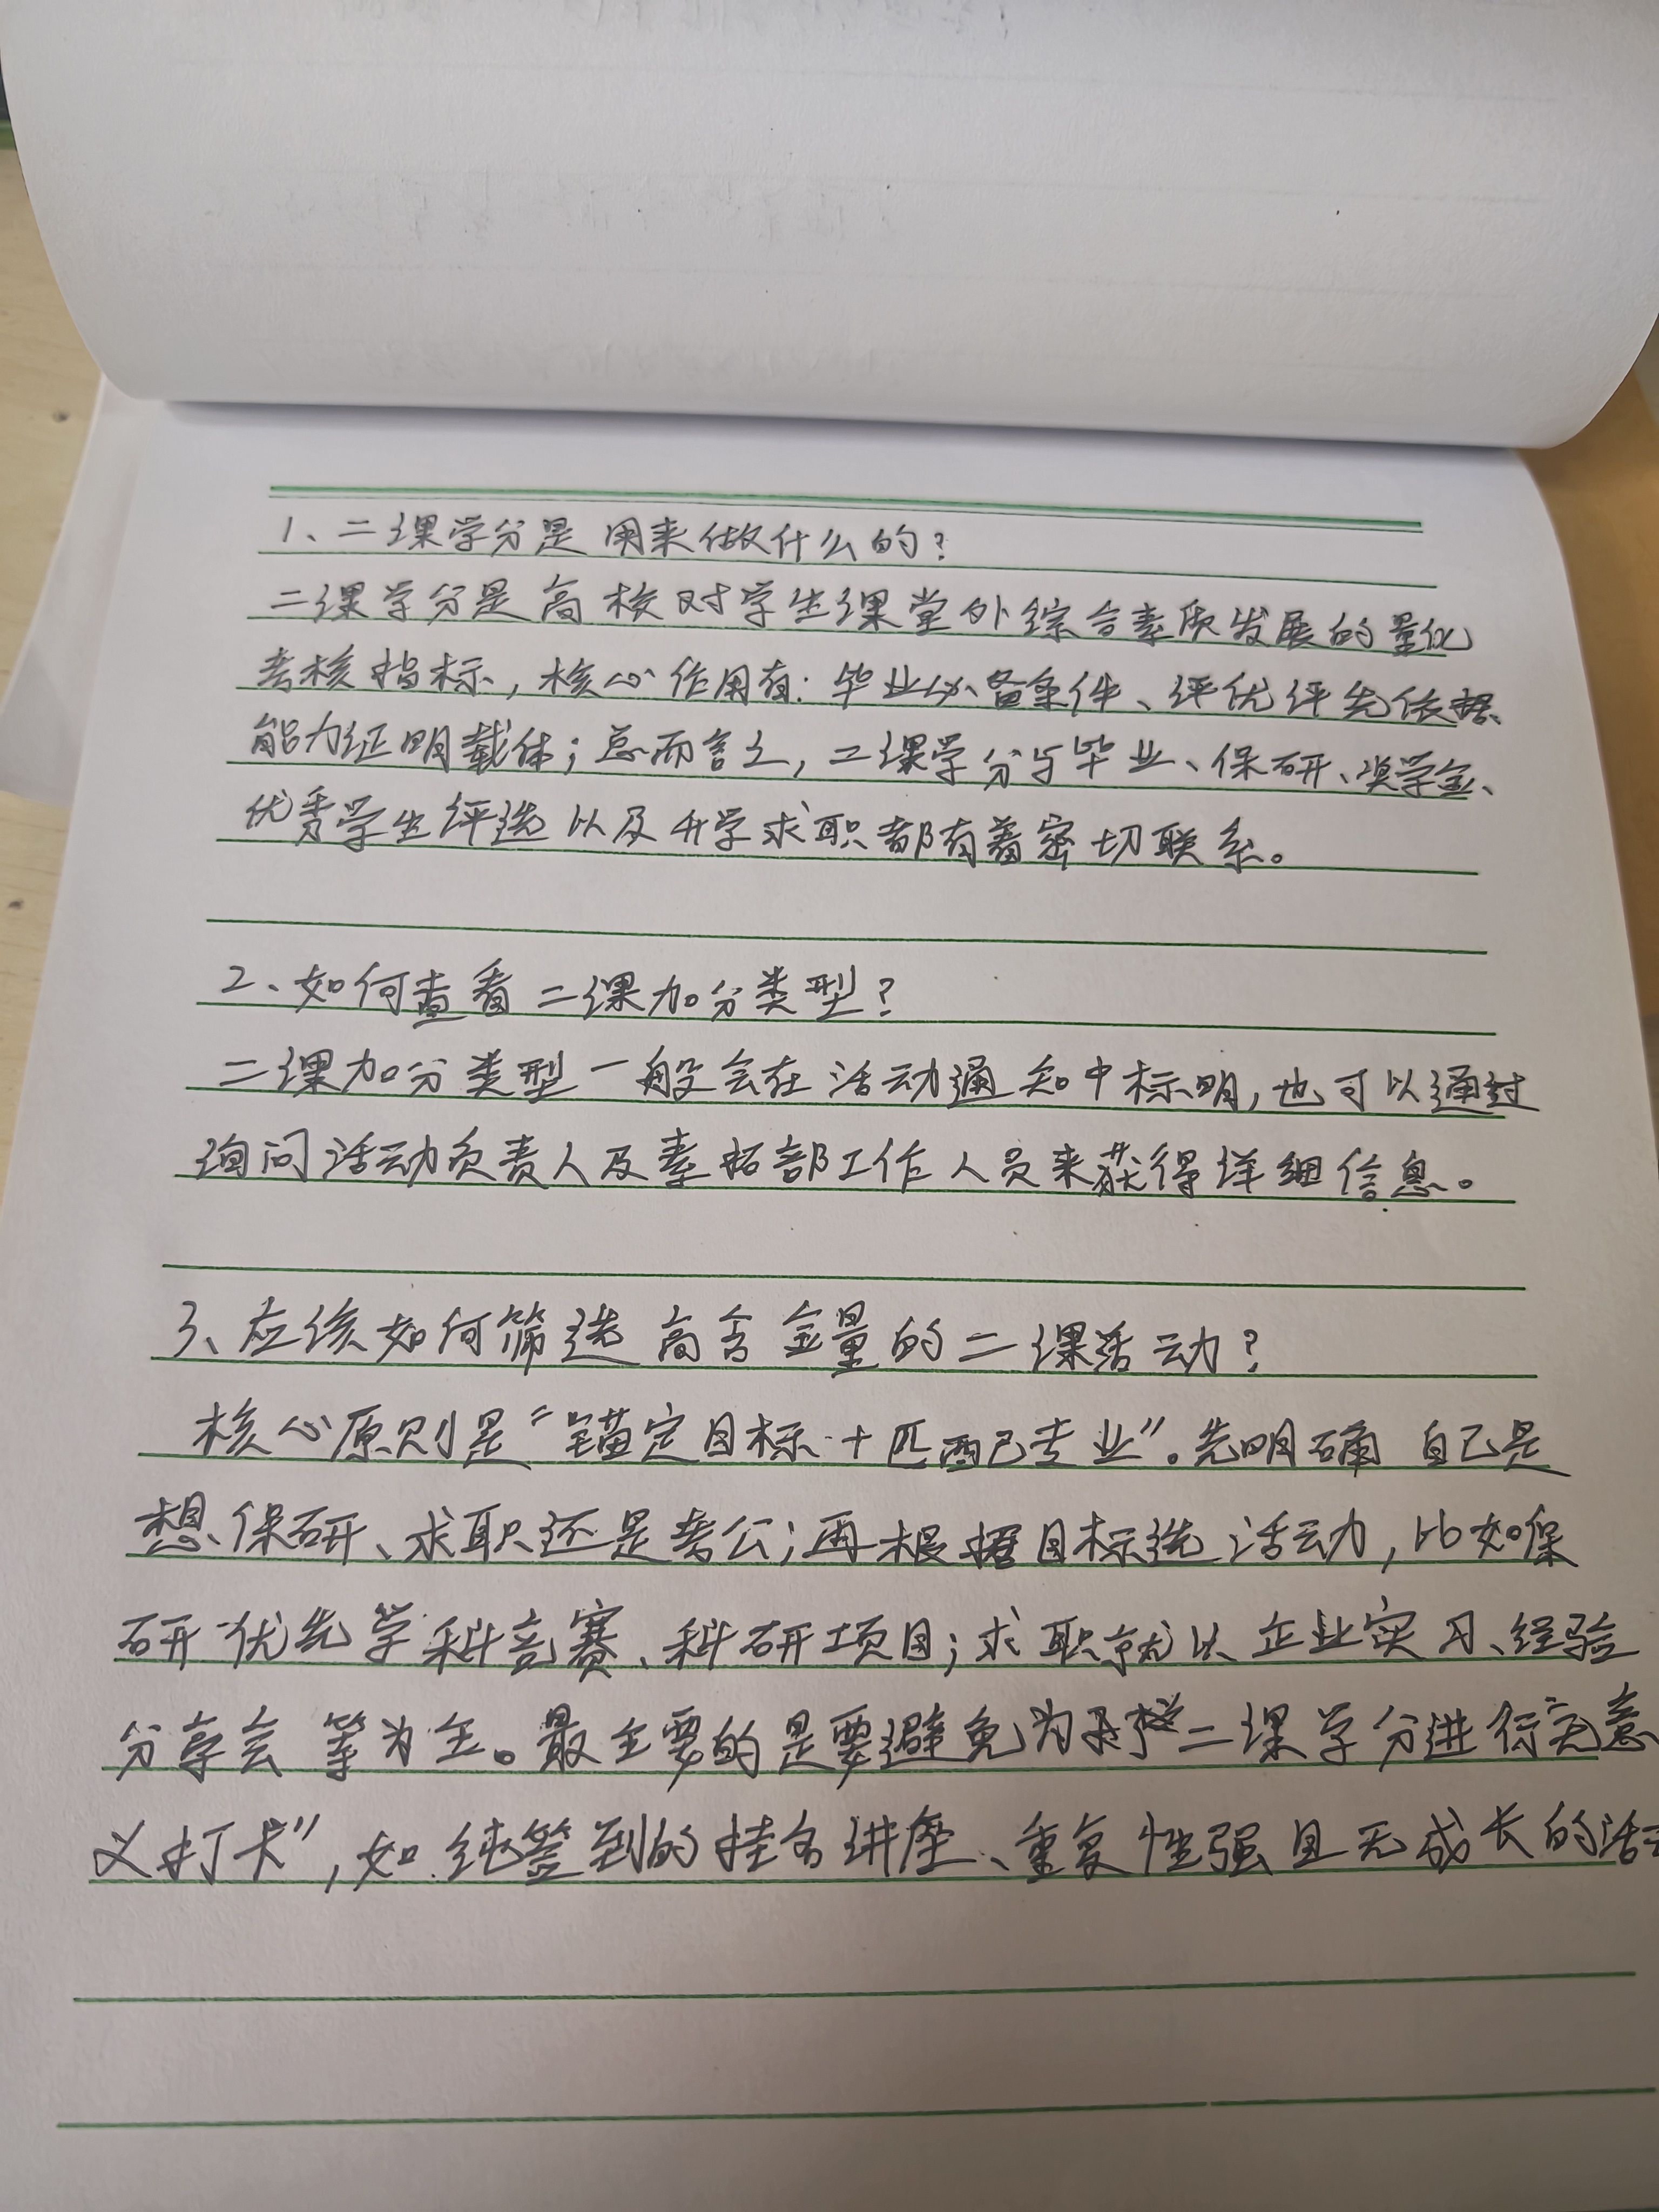 1、二课学分是用来做什么的?
二课学分是高校对学生课堂外综合素质发展的量化
考核指标，核心作用有：毕业必备条件、评优评先依据、
能力证明载体；总而言之，二课学分与毕业、保研、奖学金、
优秀学生评选以及升学求职都有着密切联系。
2、如何查看二课加分类型?
二课加分类型一般会在活动通知中标明，也可以通过
询问活动负责人及素拓部工作人员来获得详细信息。
3、应该如何筛选高含金量的二课活动?
核心原则是“锚定目标+匹配专业”。先明确自己是
想保研、求职还是考公；再根据目标选活动，比如保
研优先学科竞赛、科研项目；求职就以企业实习、经验
分享会等为主。最主要的是要避免为了二课学分进行“无意
义打卡”，如纯签到的挂名讲座、重复性强且无成长的活